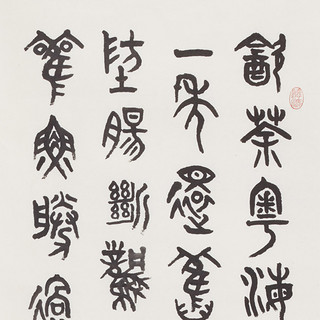 飲茶粵海
一年還舊
防腸斷風
觀魚勝過